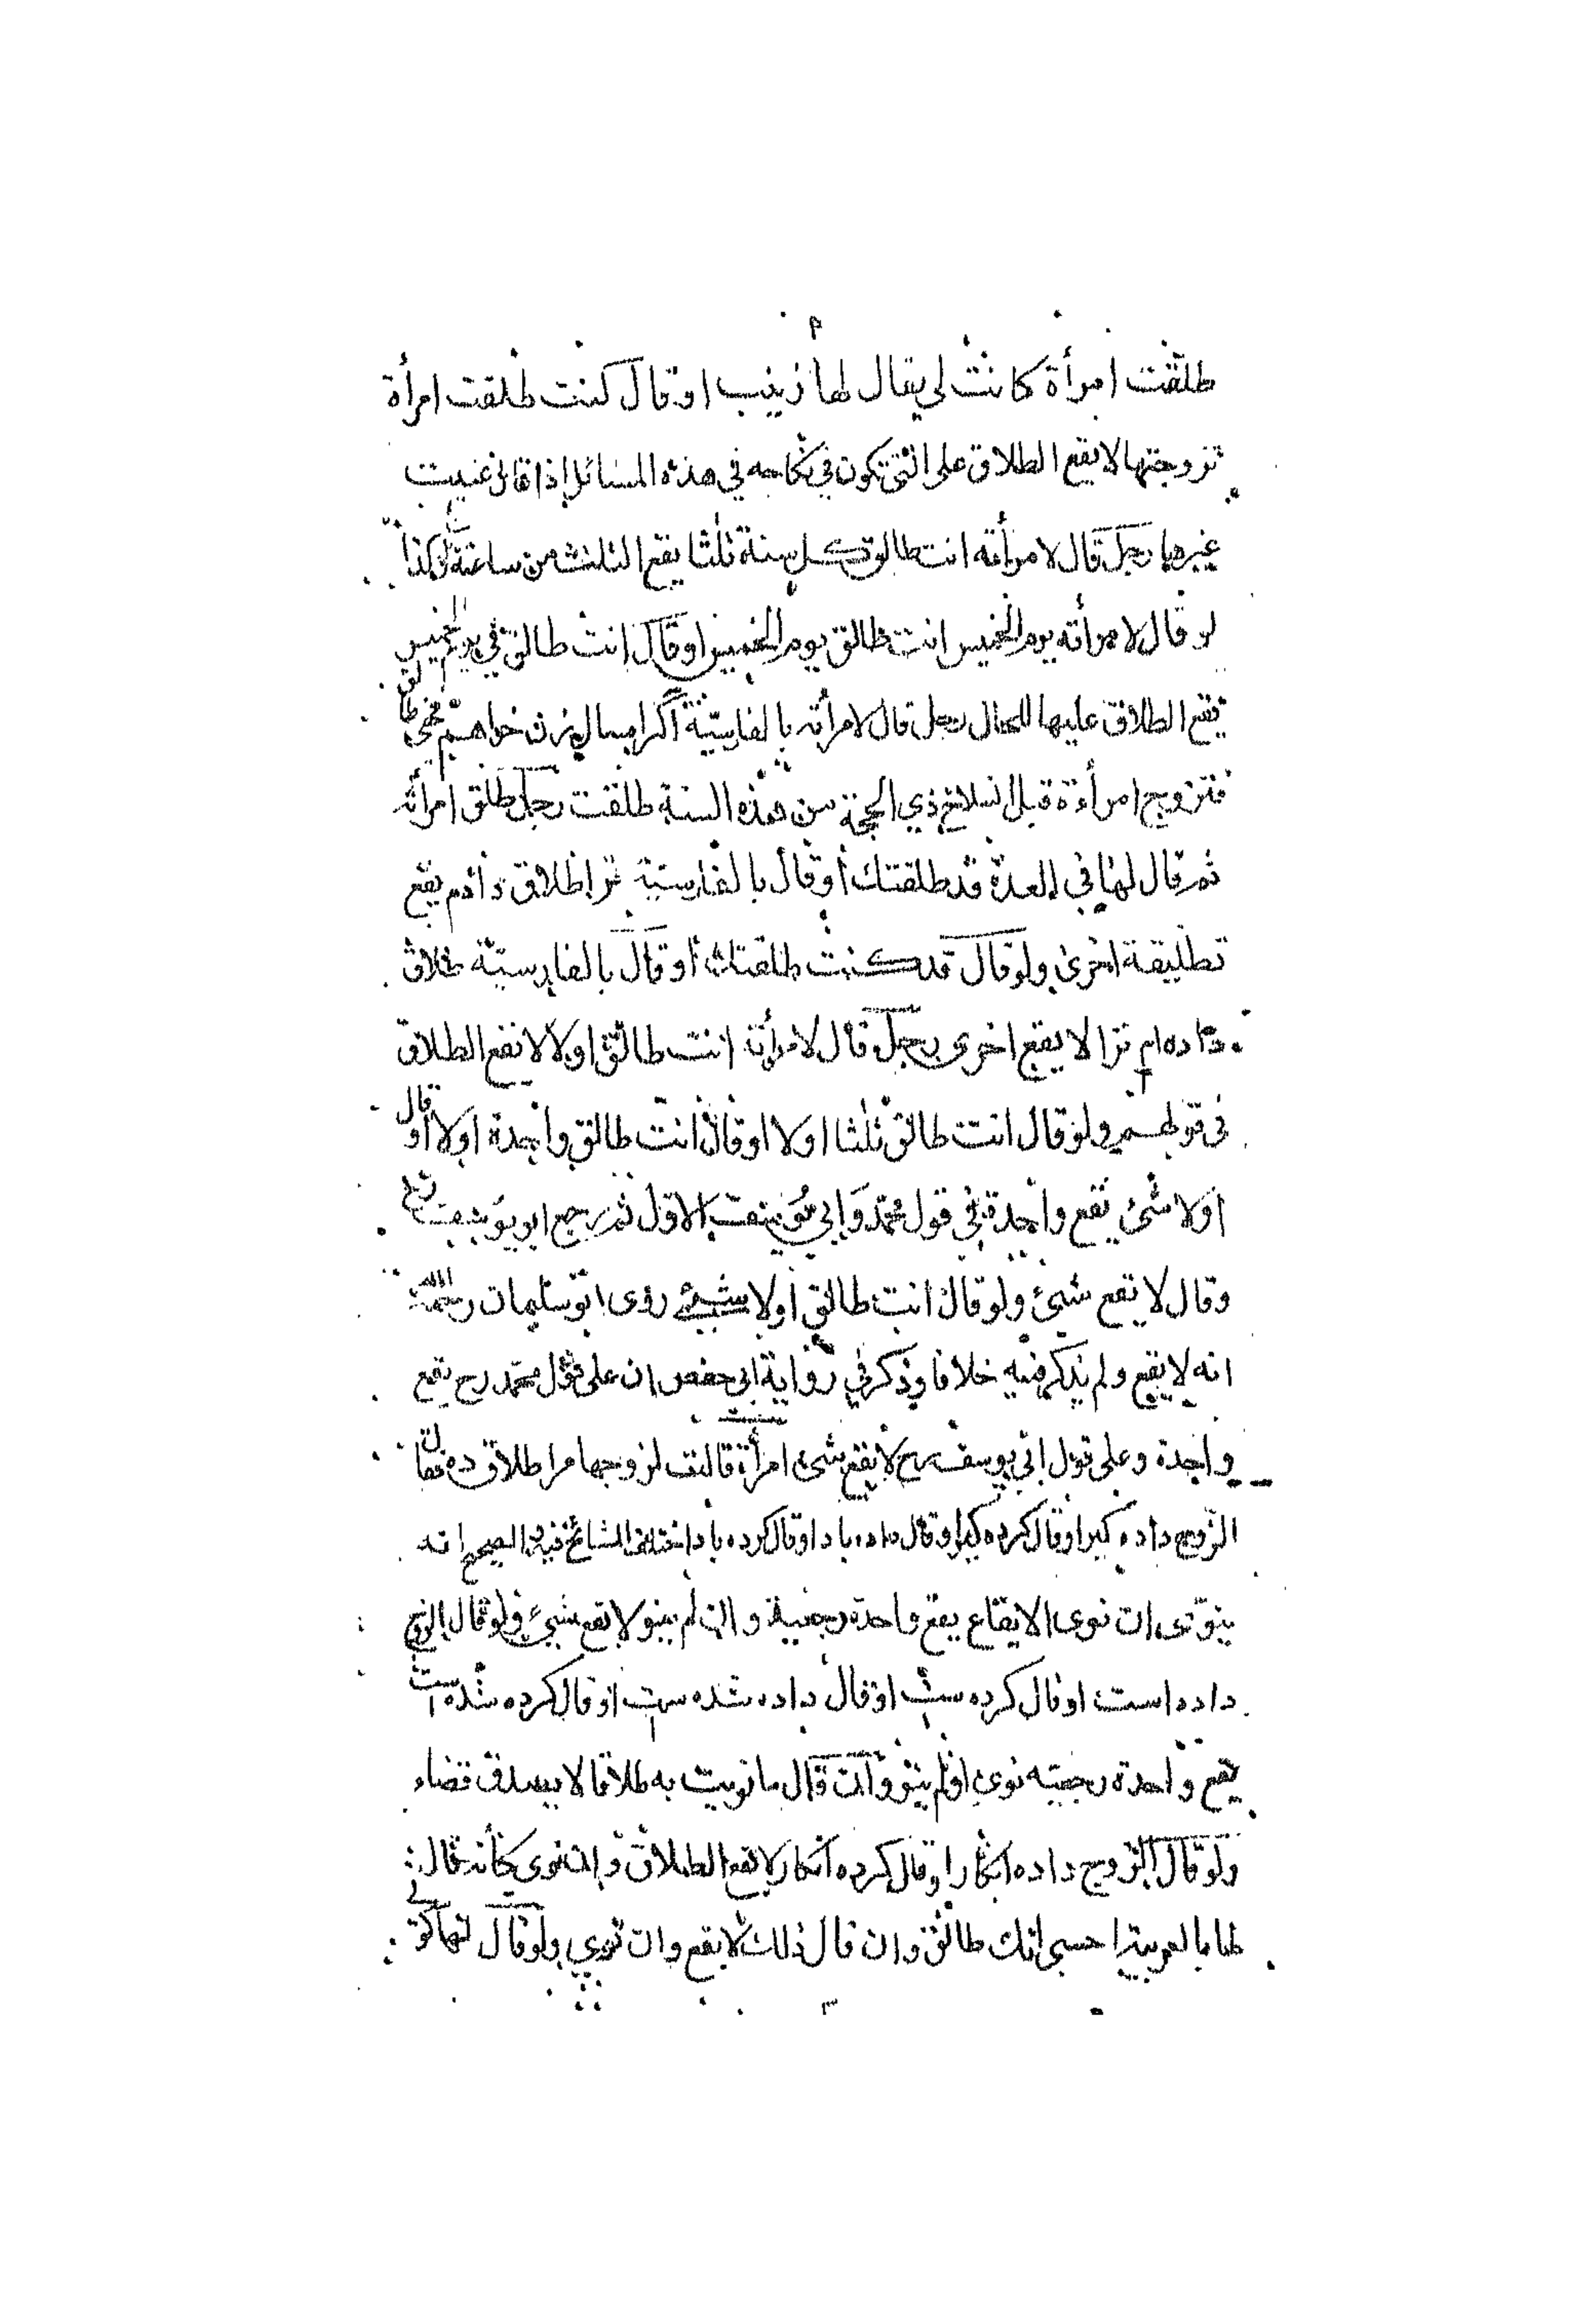 طلقت امرأة كانت لي يقال لها زينب او قال كنت طلقت امرأة
تزوجتها لا يقع الطلاق على التي تكون في نكاحه في هذه المسائل اذا قال عنيت
غيرها رجل قال لامرأته انت طالق كل سنة ثلثا يقع الثلث من ساعته وكذا
لو قال لامرأته يوم الخميس انت طالق يوم الخميس او قال انت طالق في يوم الخميس
يقع الطلاق عليها للحال رجل قال لامرأته بالفارسية اگر امسال زن خواهم فهي طالق
فتزوج امرأة قبل انسلاخ ذي الحجة من هذه السنة طلقت رجل طلق امرأته
ثم قال لها في العدة قد طلقتك او قال بالفارسية ترا طلاق دادم يقع
تطليقة اخرى ولو قال قد كنت طلقتك او قال بالفارسية طلاق
داده ام ترا لا يقع اخرى رجل قال لامرأته انت طالق اولا لا يقع الطلاق
في قولهم ولو قال انت طالق ثلثا اولا او قال انت طالق واحدة اولا او قال
اولا شئ يقع واحدة في قول محمد وابي يوسف الاول ثم رجع ابو يوسف رح
وقال لا يقع شئ ولو قال انت طالق اولا شئ روى ابو سليمان رحمه الله
انه لا يقع ولم يذكر فيه خلافا وذكر في رواية ابي حفص ان على قول محمد رح يقع
واحدة وعلى قول ابي يوسف رح لا يقع شئ امرأة قالت لزوجها مرا طلاق ده فقال
الزوج داده گير او قال كرده گير او قال داده باد او قال كرده باد اختلف المشائخ فيه الصحيح انه
ينوى ان نوى الايقاع يقع واحدة رجعية وان لم ينو لا يقع شئ ولو قال الزوج
داده است او قال كرده ست او قال داده شده ست او قال كرده شده است
يقع واحدة رجعية نوى او لم ينو وان قال ما نويت به طلاقا لا يصدق قضاء
ولو قال الزوج داده انكار او قال كرده انكار لا يقع الطلاق وان نوى كأنه قال
لها بالعربية احسبي انك طالق وان قال ذلك لا يقع وان نوى ولو قال لها كوني